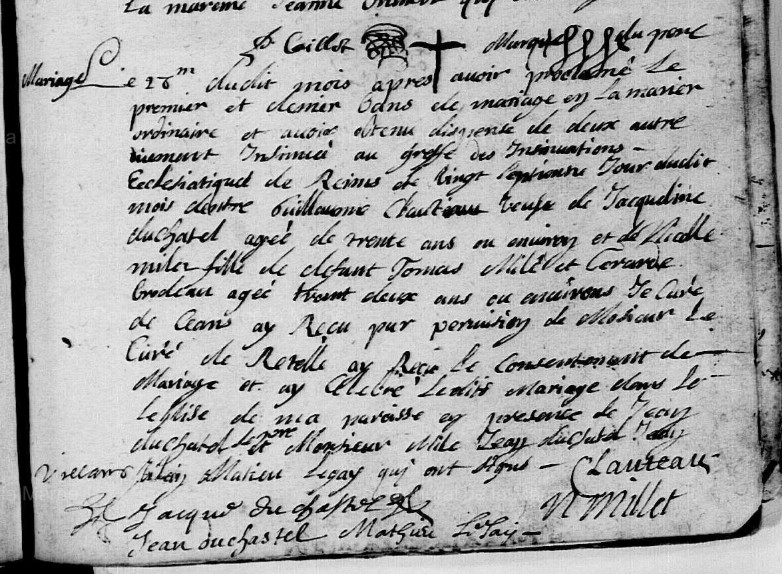 la mareine Jeanne
P Caillot marque du pere
Mariage
Le 28.me dudit mois apres avoir proclamé Le
premier et dernier bans de mariage en
ordinaire et avoir obtenu dispense de deux autre
Insinué au greffe des Insinuations
Ecclesiatiques de Reims Le Vingt septiesme Jour dudit
mois dentre Guillaume Clauteau veufe de Jacqueline
duchatel ageé de trente ans ou environ et de Nicolle
milet fille de defunt Tomas Milet et Gerarde
brodeau ageé trant deux ans ou environs Je Curé
de Ceans ay Reçu par permision de Mosieur Le
Curé de Retelle ay Reçu Le Consentement de
Mariage et ay Celebré Ledits Mariage dans Le
Leglise de ma paroisse en presence de Jean
duchatel Le pre et Monsieur Mile Jean duchatel
Matieu Legay qui ont signé
Clauteau
N Millet
Jacque duchastel
Jean duchastel Mathieu LeGay